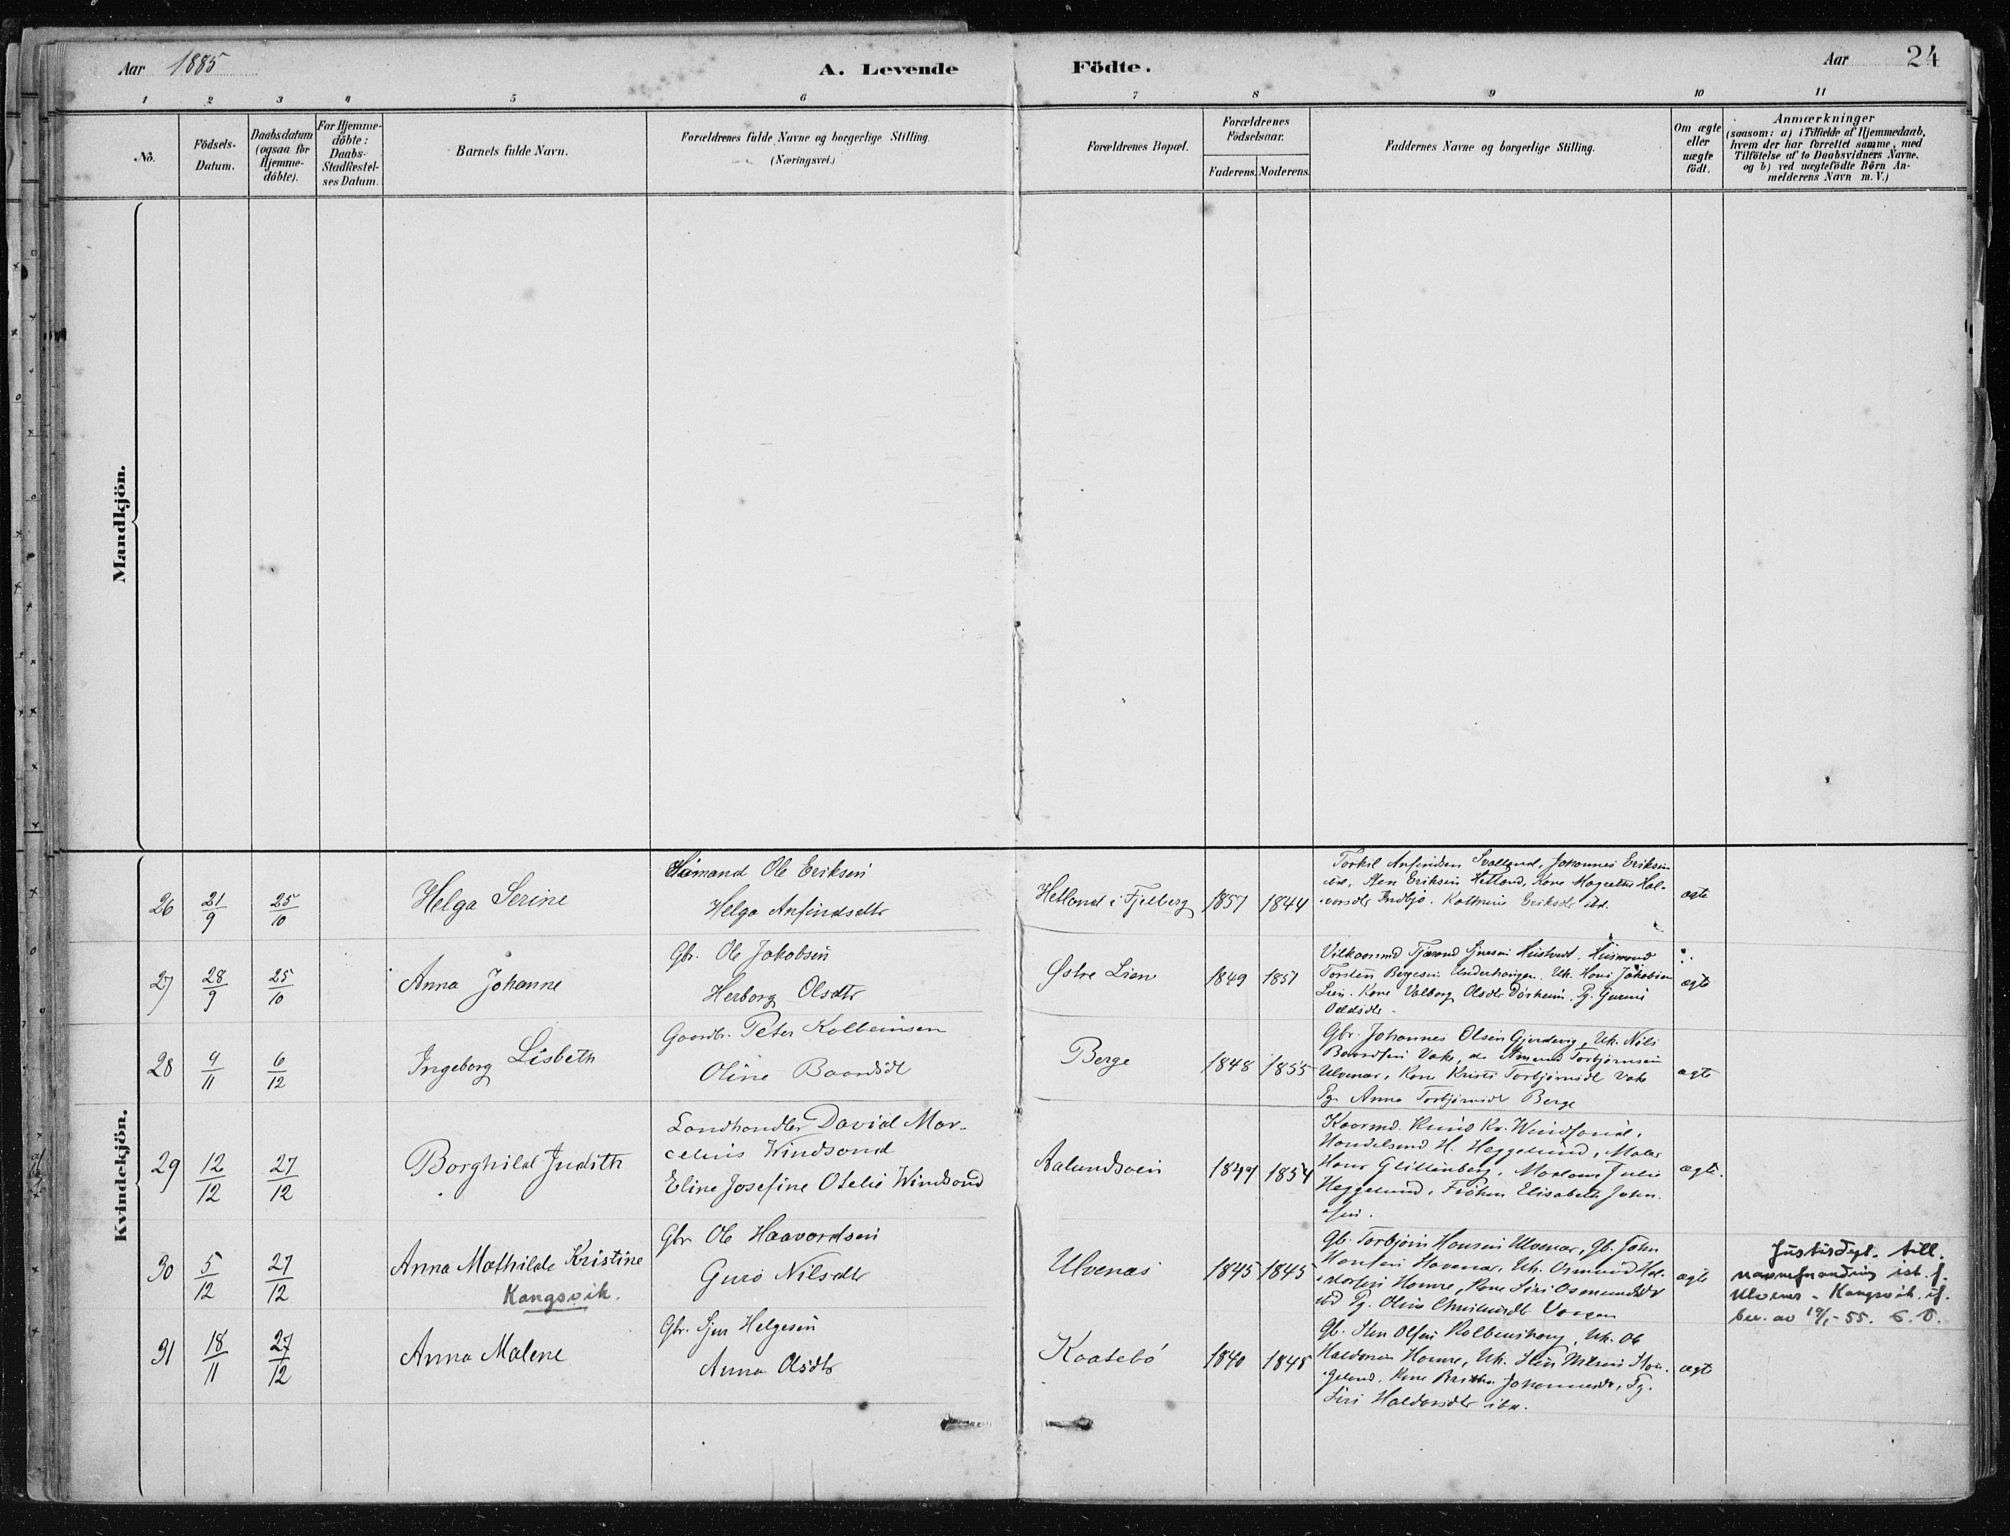 Aar 1885
A. Levende
Födte.
Aar 24
1 2 3 4 5 6 7 8 9 10 11
No.
Födsels-
Datum.
Daabsdatum
(ogsaa for
Hjemme-
döbte).
For Hjemme-
döbte:
Daabs-
Stadfæstel-
ses Datum.
Barnets fulde Navn.
Forældrenes fulde Navne og borgerlige Stilling.
(Næringsvei.)
Forældrenes Bopæl.
Forældrenes
Födselsaar.
Faderens. Moderens.
Faddernes Navne og borgerlige Stilling.
Om ægte
eller
uægte
födt.
Anmærkninger
(saasom: a) i Tilfælde af Hjemmedaab,
hvem der har forrettet samme, med
Tilföielse af to Daabsvidners Navne,
og b) ved uægtefödte Börn An-
melderens Navn m. V.)
Mandkjön.
Kvindekjön.
26 21/9 25/10
Helga Serine
Husmand Ole Eriksen
Helga Anfindsdtr
Hetland i Fjelberg 1857 1844
Torkil Anfindsen Svolland, Johannes Eriksen
ibd, Sten Eriksen Hetland, Kone Magrethe Hal-
vorsdtr Indbjo. Kathrine Eriksdtr ibd.
ægte
27 28/9 25/10
Anna Johanne
Gbr. Ole Jakobsen
Herborg Olsdtr
Østre Lien 1849 1851
Torsten Børgesen Underhaugen, Uk. Hans Jakobsen
Lien. Kone Valborg Olsdtr
Oddsdtr.
ægte
28 4/11 6/12
Ingeborg Lisbeth
Gaardbr. Peter Kolbeinsen
Oline Baardsdt
Berge 1848 1855
Gbr. Johannes Olsen Gjerdevig, Uk. Nils
Baardsen Vake, do Amund Torbjørnsen
Ulvenæs, Kone Kristi Torbjørnsdt Vake
Pg. Anna Torbjørnsdt Berge
ægte
29 12/12 27/12
Borghild Judith
Landhandler David Mar-
celius Windsand
Eline Josefine Otelie Windsand
Aalundsøen 1849 1854
Knud Kr. Windsand,
Handelsmd H. Heggelund, Maler
Hans Glittenberg, Madame Julie
Heggelund, Frøken Elisabeth John-
sen.
ægte.
30 5/12 27/12
Anna Mathilde Kristine
Kangsvik.
Gbr Ole Haavordsen
Guro Nilsdtr
Ulvenæs 1845 1845
Gb. Torbjørn Hansen Ulvenæs, Gb. John
Hansen Havenæs, Uk. Osmund Hal-
dorsen Hamre, Kone Siri Osmundsdtr
ibd Pg. Oline
ægte
Justisdept. till.
navneforandring ist. f.
Ulvenes - Kangsvik if.
bev. av 19/1-55. S. D.
31 18/11 27/12
Anna Malene
Gbr. Sjur Helgesen
Anna Olsdtr
Kaatebø 1840 1845
Gb. Sten Olsen Kolbenshaug, Uk. Ole
Haldorsen Hamre, Uk. Sten Nilsen Hau-
geland, Kone Britha Johannesdt, Pg.
Siri Haldorsdtr ibd.
ægte